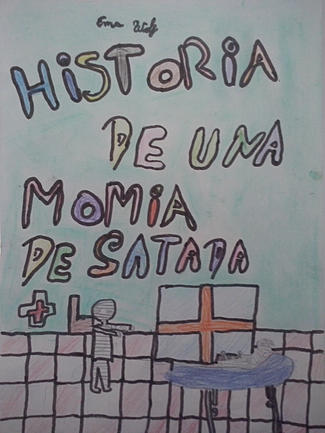 Ema Wolf
HISTORIA
DE UNA
MOMIA
DE SATADA